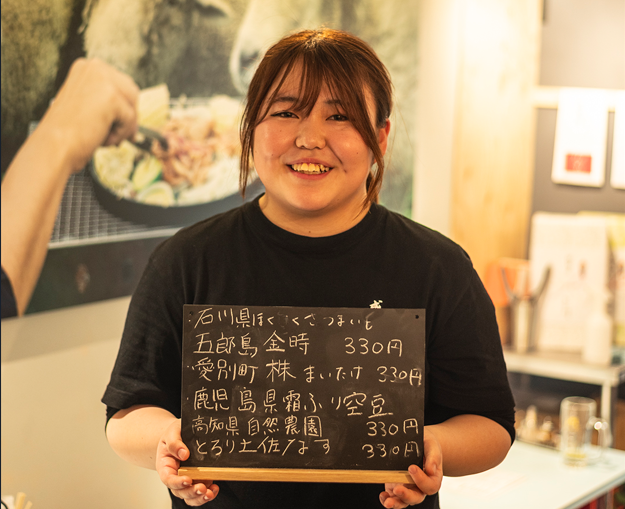 ・石川県ほくほくさつまいも
五郎島金時 330円
・愛別町 株 まいたけ 330円
・鹿児島県霜ふり空豆
高知県自然農園 330円
とろり土佐ナす 330円